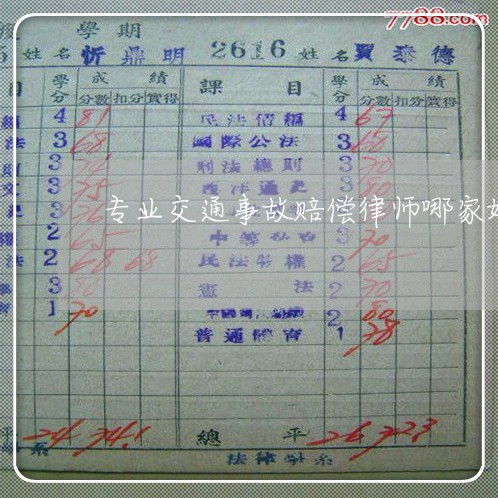 7788.com
學期
姓名 忻鼎明 2616 姓名 賈泰德
目 學分 成績 課目 學分 成績
分數 扣分 實得 分數 扣分 實得
4 81 民法債編 4 67
法 3 68 國際公法 3 60
3 刑法總則 3 70
3 75 3 80
专业交通事故赔偿律师哪家好
2 65 3 70
法 2 68 68 民法物權 2 65
3 80 憲法 2 70
1 70 2 80
普通體育 1 78
平 24 74.1 總平 26 72.3
法律學系